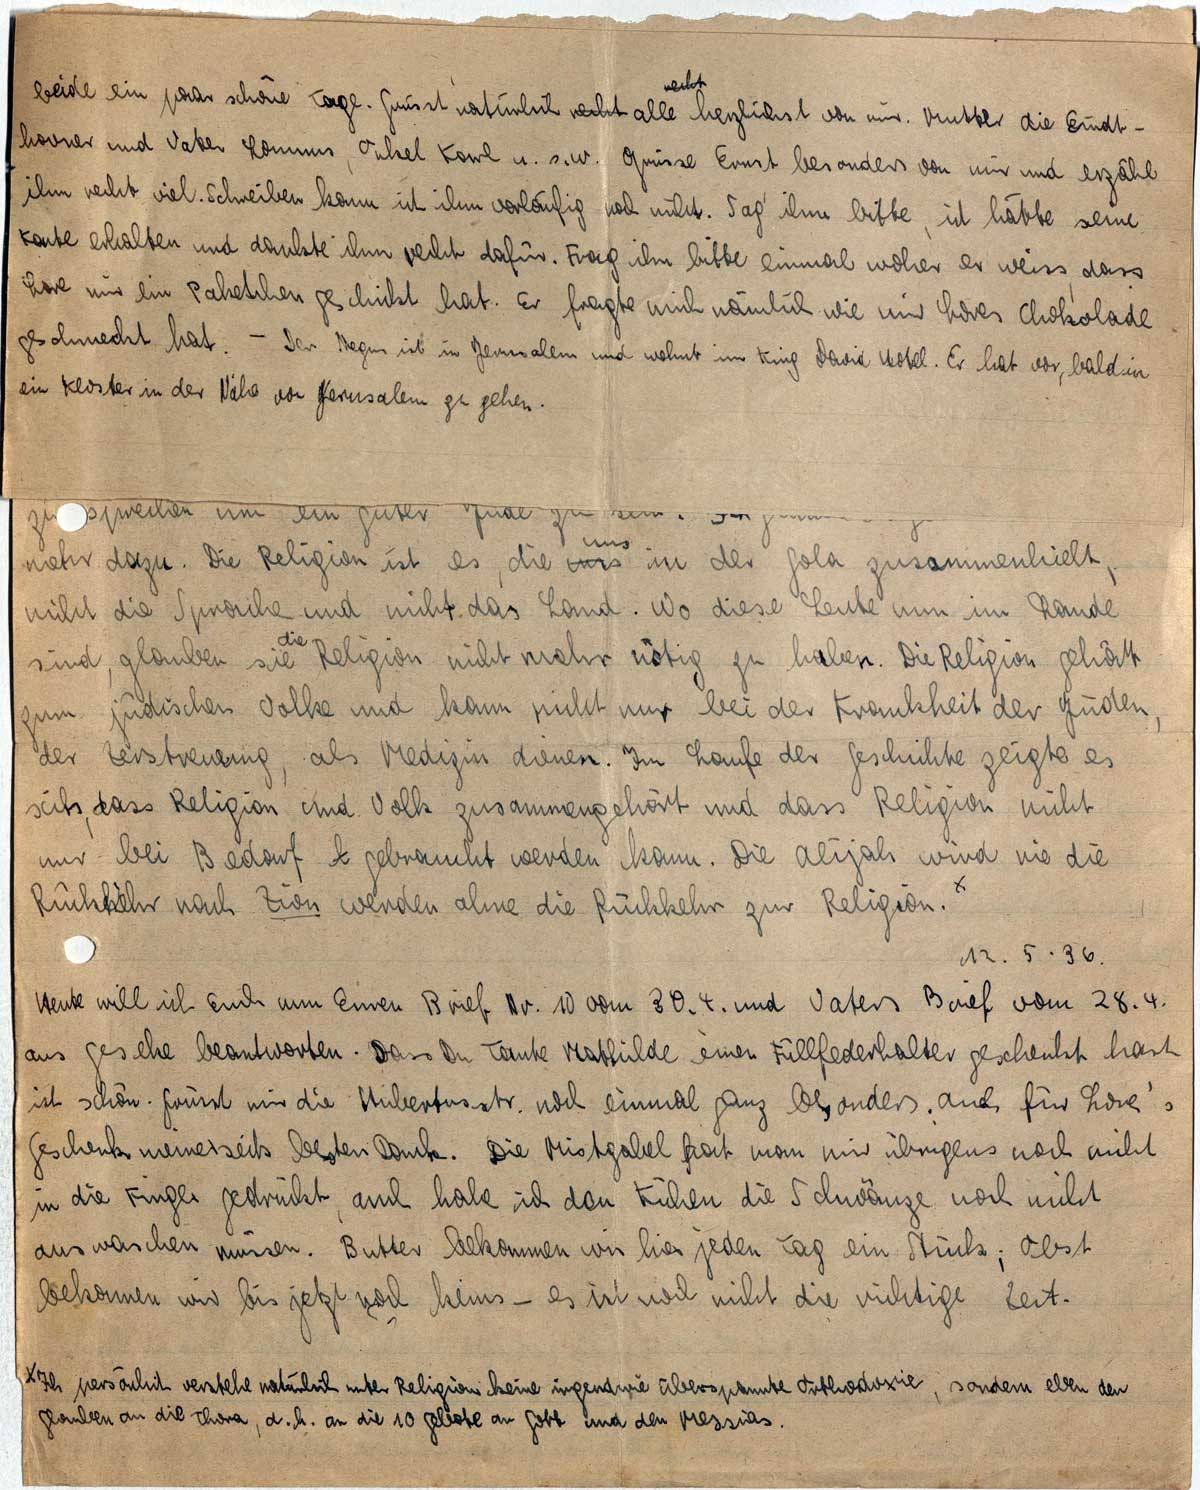 beide ein paar schöne Tage. Grüsst natürlich alle recht herzlichst von mir. Mutter die Eindt-
hovner und Vater Hommus, Onkel Karl u. s. w. Grüsse Ernst besonders von mir und erzähl
ihm recht viel. Schreiben kann ich ihm vorläufig noch nicht. Sag' ihm bitte, ich hätte seine
Karte erhalten und dankte ihm recht dafür. Frag ihn bitte einmal woher er weiss, dass
Lore mir ein Paketchen geschickt hat. Er fragte mich nämlich wie mir Lores Chokolade
geschmeckt hat. – Der Negus ist in Jerusalem und wohnt im King David Hotel. Er hat vor, bald in
ein Kloster in der Nähe von Jerusalem zu gehen.
zu sprechen um ein guter Jude zu sein.
mehr dazu. Die Religion ist es, die uns in der Gola zusammenhielt,
nicht die Sprache und nicht das Land. Wo diese Leute nun im Lande
sind, glauben sie die Religion nicht mehr nötig zu haben. Die Religion gehört
zum jüdischen Volke und kann nicht nur bei der Krankheit der Juden,
der Zerstreuung, als Medizin dienen. Im Laufe der Geschichte zeigte es
sich, dass Religion und Volk zusammengehört und dass Religion nicht
nur bei Bedarf gebraucht werden kann. Die Alijah wird nie die
Rückkehr nach Zion werden ohne die Rückkehr zur Religion. x
12. 5. 36.
Heute will ich Euch nun Euren Brief Nr. 10 vom 30.4. und Vaters Brief vom 28.4.
aus gesehe beantworten. Dass Du Tante Mathilde einen Füllfederhalter geschenkt hast
ist schön. Grüsst mir die Hubertusstr. noch einmal ganz besonders. Auch für Lore's
Geschenk meinerseits besten Dank. Die Mistgabel hat man mir übrigens noch nicht
in die Finger gedrückt, auch habe ich den Kühen die Schwänze noch nicht
auswaschen müssen. Butter bekommen wir hier jeden Tag ein Stück; Obst
bekommen wir bis jetzt noch keins – es ist noch nicht die richtige Zeit.
x Ich persönlich verstehe natürlich unter Religion keine irgendwie überspannte Orthodoxie, sondern eben den
Glauben an die Thora, d. h. an die 10 Gebote an Gott und den Messias.